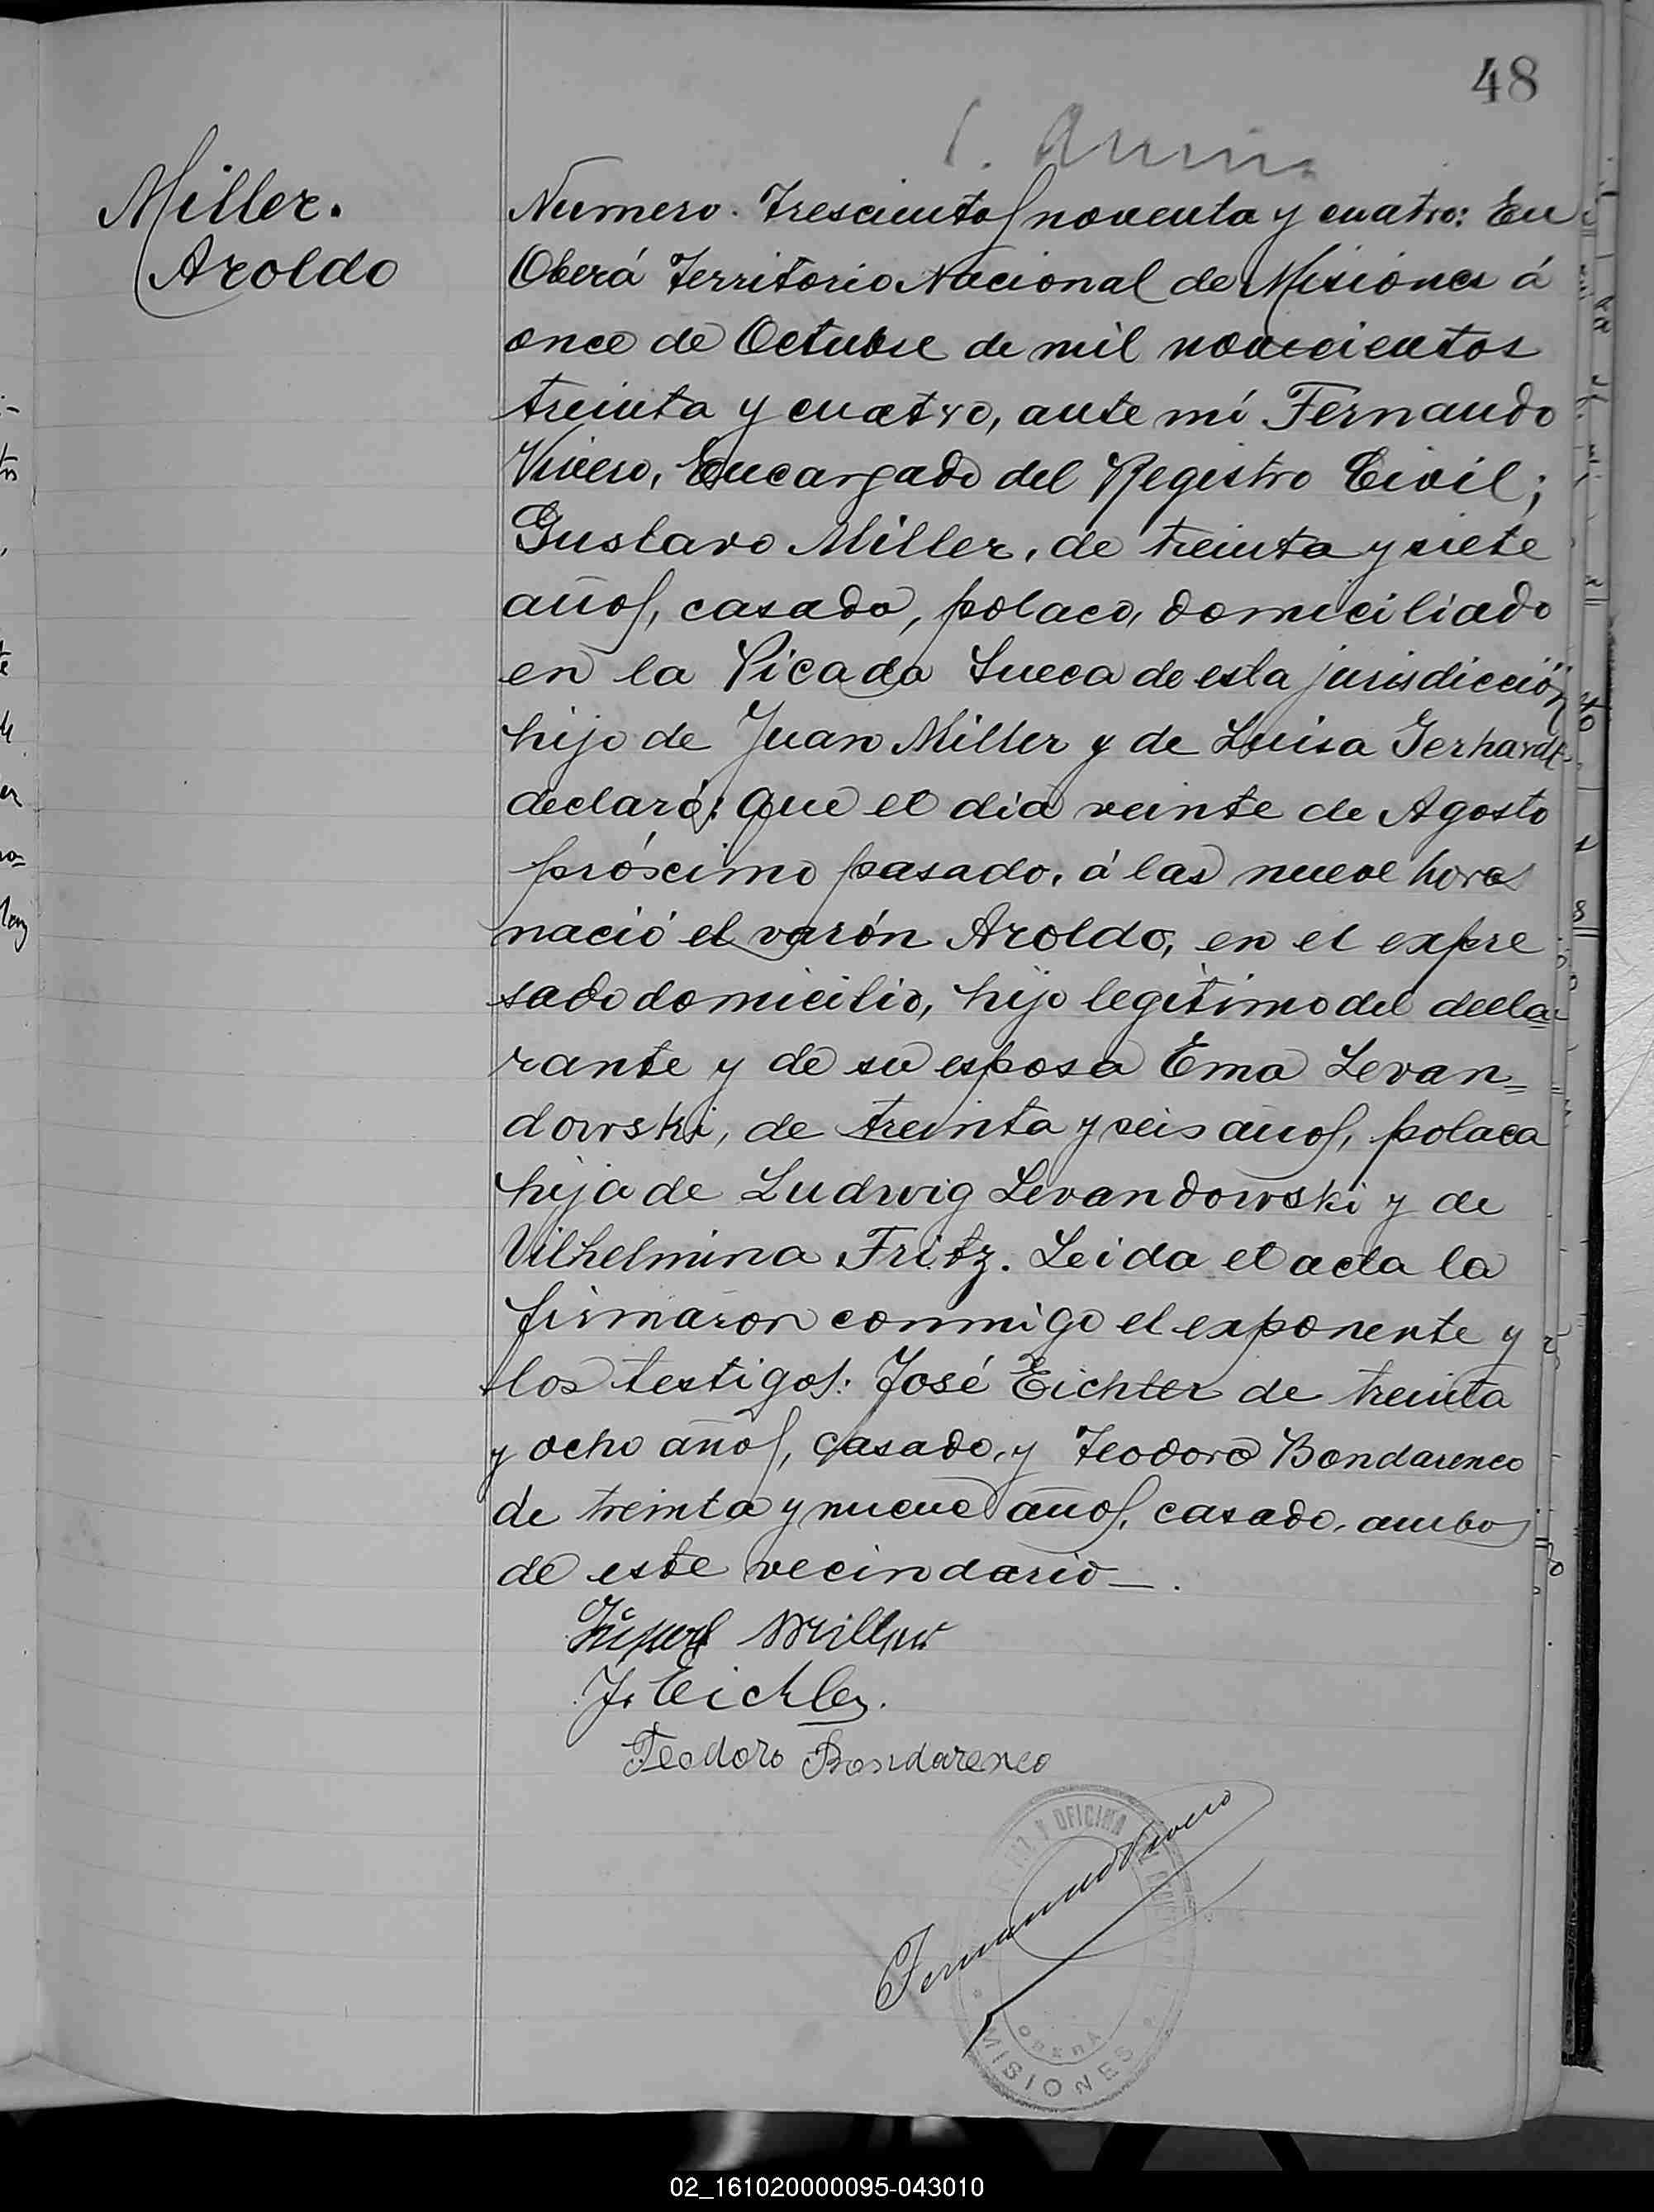 48
Miller.
Aroldo
Numero. Trescientos noventa y cuatro: En
Oberá Territorio Nacional de Misiones á
once de Octubre de mil novecientos
treinta y cuatro, ante mí Fernando
Vivero, Encargado del Registro Civil;
Gustavo Miller, de treinta y siete
años, casado, polaco, domiciliado
en la Picada Sueca de esta jurisdicción
hijo de Juan Miller y de Luisa Gerhardt
declaró: Que el dia veinte de Agosto
próximo pasado, á las nueve horas
nació el varón Aroldo, en el expre
sado domicilio, hijo legítimo del decla=
rante y de su esposa Ema Levan=
dowski, de treinta y seis años, polaca
hija de Ludwig Levandowski y de
Vilhelmina Fritz. Leida el acta la
firmaron conmigo el exponente y
los testigos: José Eichler de treinta
y ocho años, casado, y Teodoro Bondarenco
de treinta y nueve años, casado, ambos
de este vecindario_.
Miller
J. Eichler.
Teodoro Bondarenco
Fernando Vivero
Y OFICINA
OBERÁ
MISIONES
02_161020000095-043010